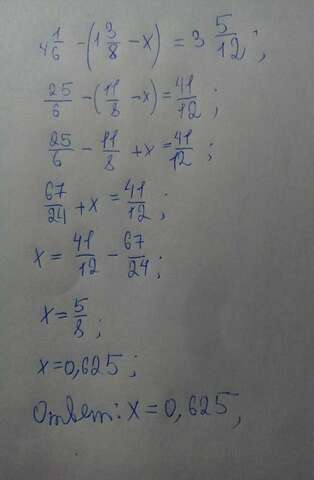 4 1/6 - (1 3/8 - x) = 3 5/12;
25/6 - (11/8 - x) = 41/12;
25/6 - 11/8 + x = 41/12;
67/24 + x = 41/12;
x = 41/12 - 67/24;
x = 5/8;
x = 0,625;
Ответ: x = 0,625;